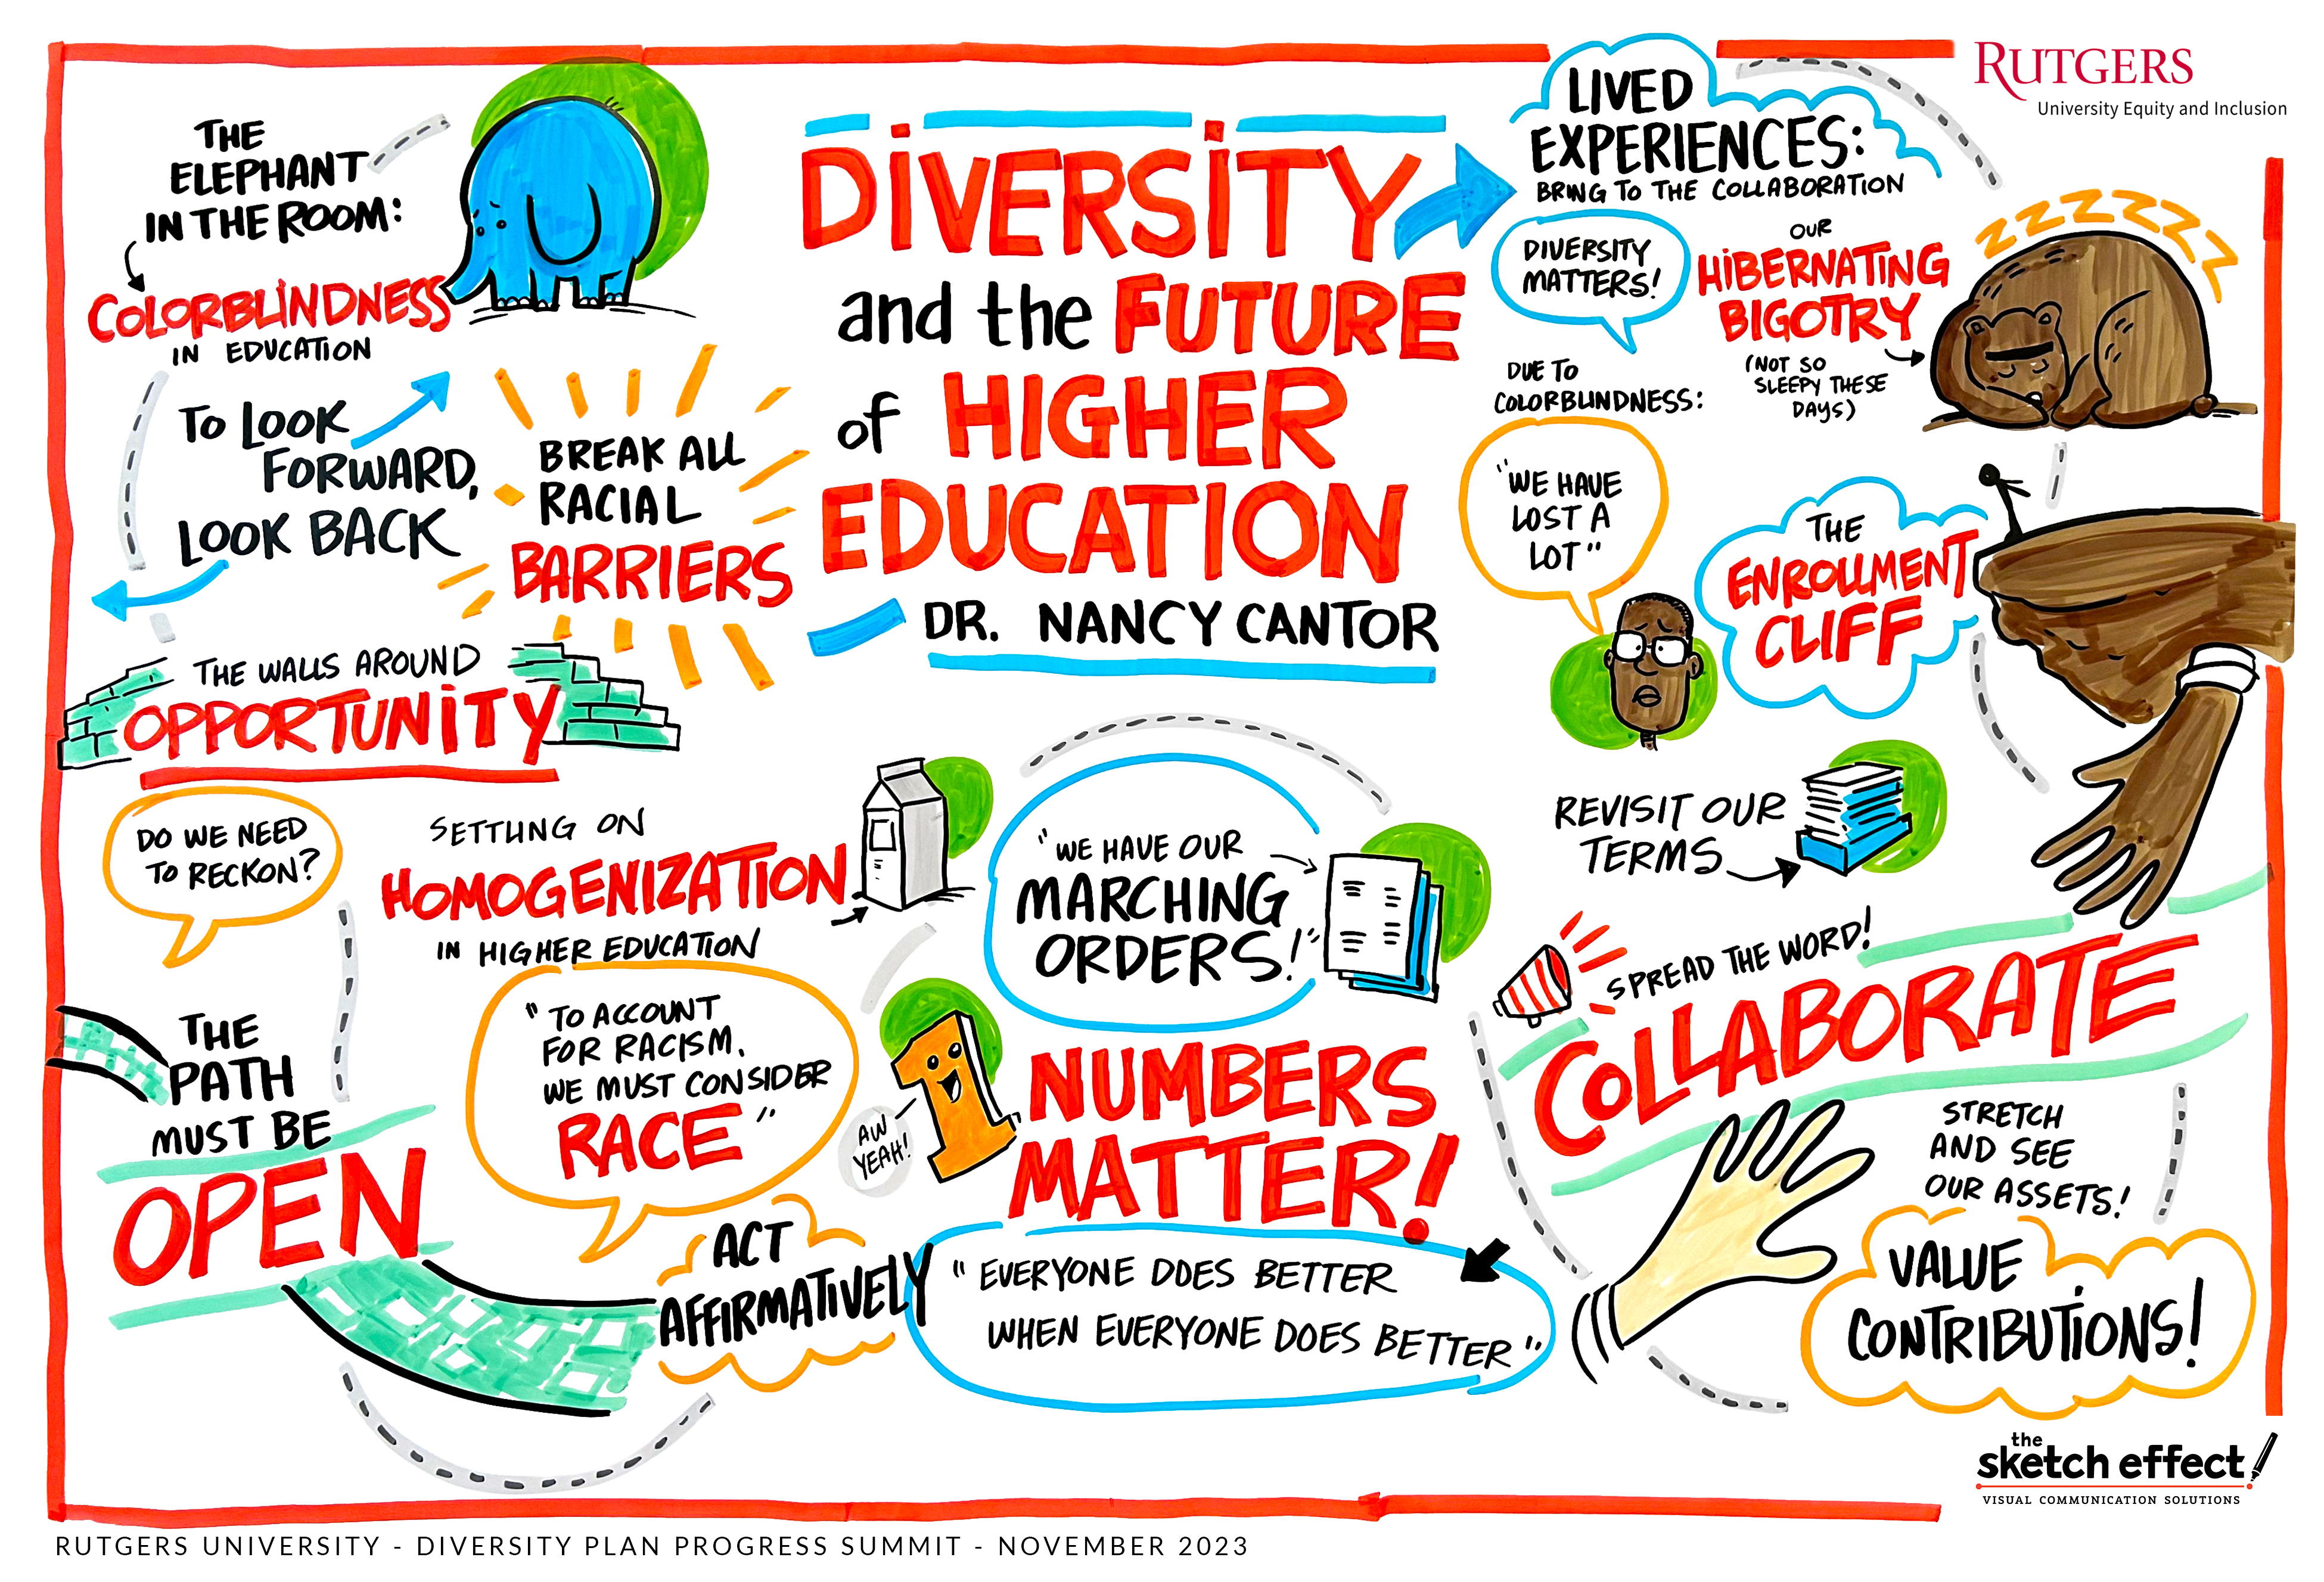 RUTGERS
University Equity and Inclusion
THE
ELEPHANT
IN THE ROOM:
COLORBLINDNESS
IN EDUCATION
TO LOOK
FORWARD,
LOOK BACK
BREAK ALL
RACIAL
BARRIERS
THE WALLS AROUND
OPPORTUNITY
DIVERSITY
and the FUTURE
of HIGHER
EDUCATION
DR. NANCY CANTOR
LIVED
EXPERIENCES:
BRING TO THE COLLABORATION
DIVERSITY
MATTERS!
OUR
HIBERNATING
BIGOTRY
(NOT SO
SLEEPY THESE
DAYS)
ZZZZZZ
DUE TO
COLORBLINDNESS:
"WE HAVE
LOST A
LOT"
THE
ENROLLMENT
CLIFF
REVISIT OUR
TERMS
DO WE NEED
TO RECKON?
SETTLING ON
HOMOGENIZATION
IN HIGHER EDUCATION
"WE HAVE OUR
MARCHING
ORDERS!"
SPREAD THE WORD!
COLLABORATE
THE
PATH
MUST BE
OPEN
"TO ACCOUNT
FOR RACISM.
WE MUST CONSIDER
RACE"
1
AW
YEAH!
NUMBERS
MATTER!
STRETCH
AND SEE
OUR ASSETS!
ACT
AFFIRMATIVELY
"EVERYONE DOES BETTER
WHEN EVERYONE DOES BETTER"
VALUE
CONTRIBUTIONS!
the
sketch effect
VISUAL COMMUNICATION SOLUTIONS
RUTGERS UNIVERSITY - DIVERSITY PLAN PROGRESS SUMMIT - NOVEMBER 2023